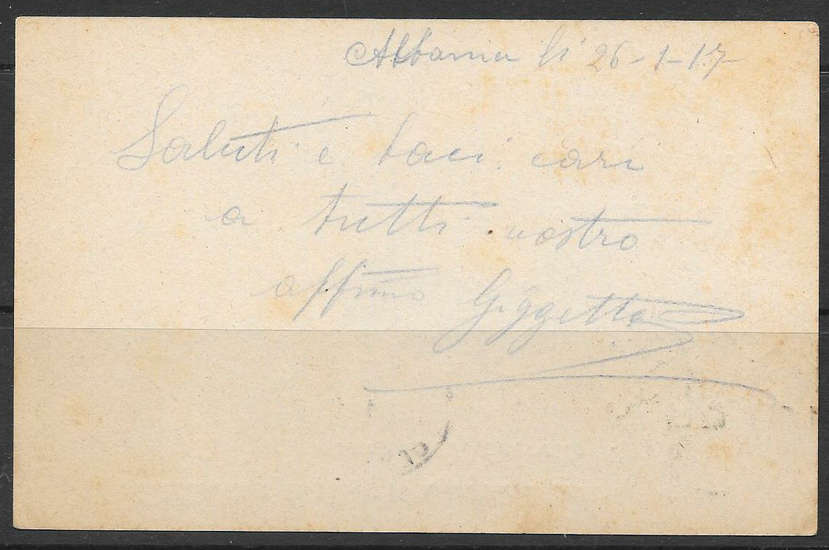 Albania li 26-1-17
Saluti e baci cari
a tutti vostro
affmo Giggetto